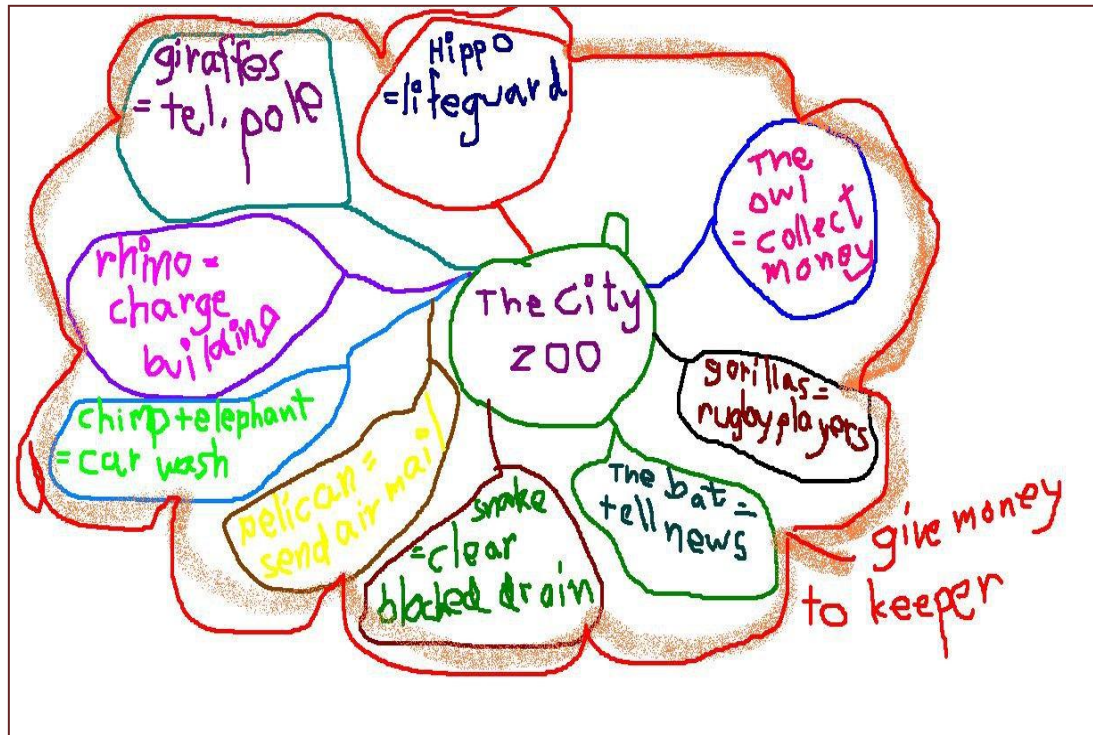 giraffes
= tel. pole
Hippo
= lifeguard
The
owl
= collect
money
rhino =
charge
building
The City
ZOO
gorillas =
rugby players
chimp + elephant
= car wash
pelican =
send air mail
snake
= clear
blocked drain
The bat =
tell
news
give money
to keeper